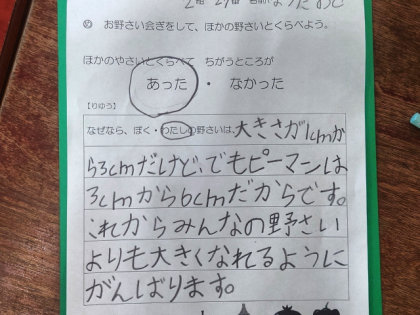 2組 29番 名前
お野さい会ぎをして、ほかの野さいとくらべよう。
ほかのやさいとくらべて ちがうところが
あった ・ なかった
【りゆう】
なぜなら、ぼく・わたしの野さいは、大きさが1cmか
ら3cmだけど、でもピーマンは
3cmから6cmだからです。
これからみんなの野さい
よりも大きくなれるように
がんばります。